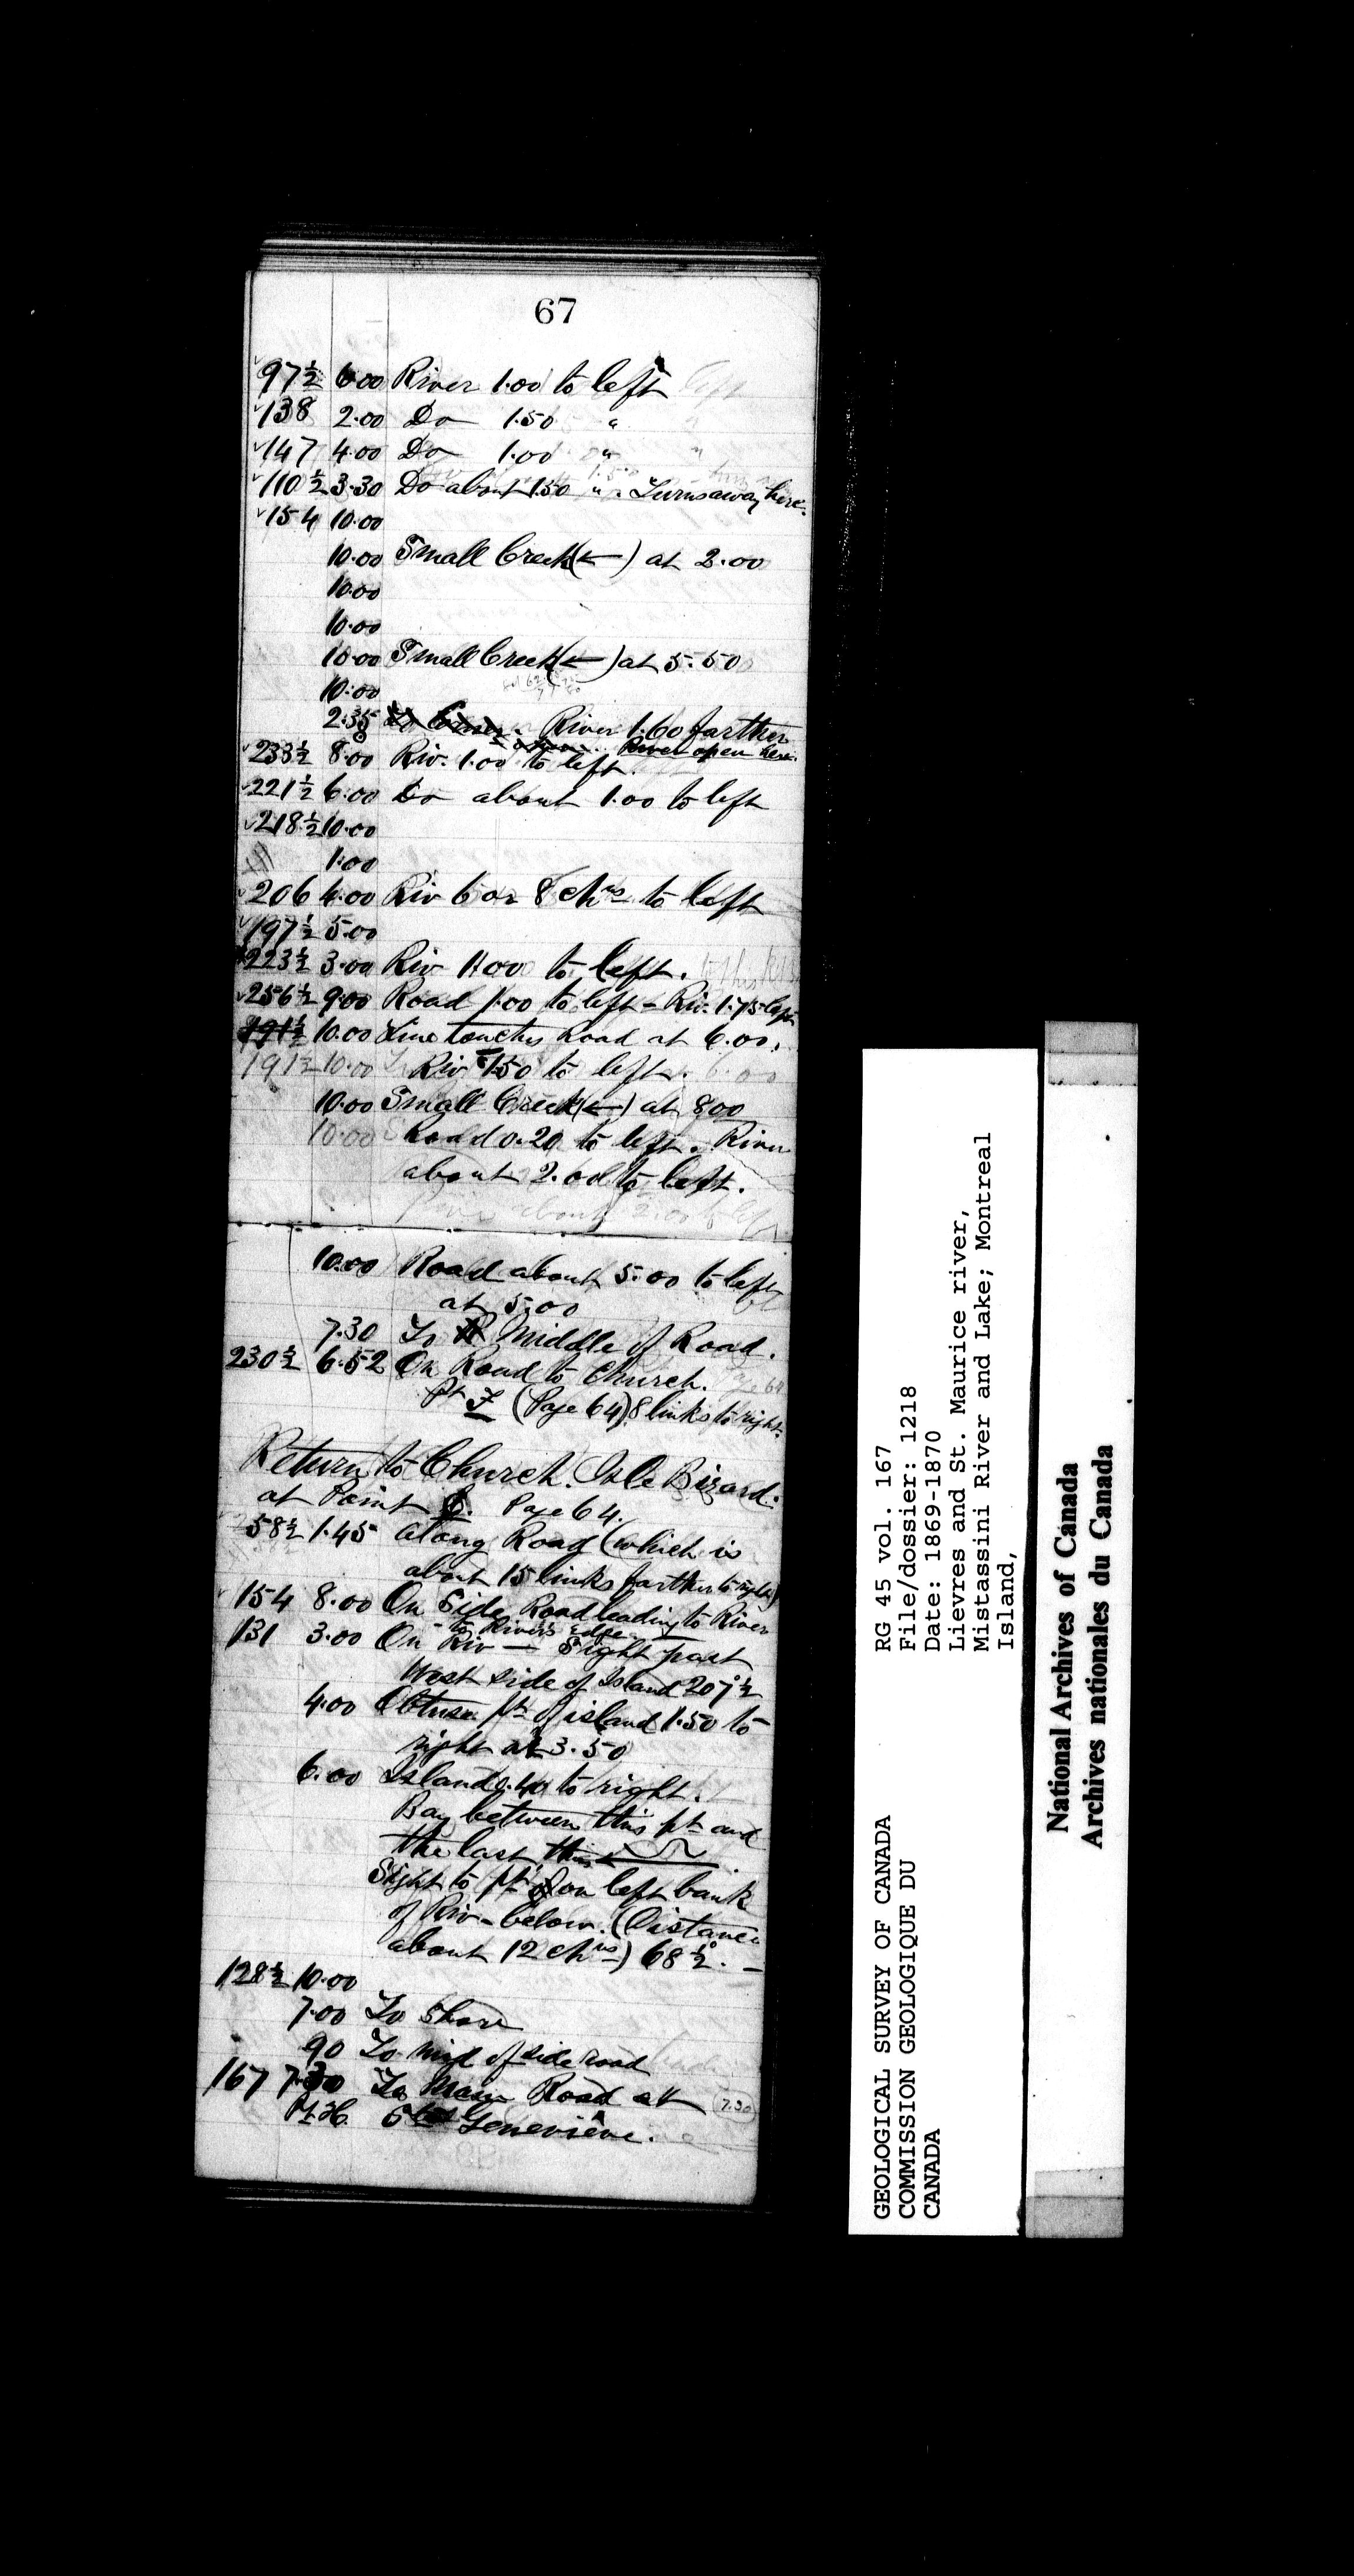 67
97½ 6.00 River 1.00 to left
138 2.00 Do 1.50 "
147 4.00 Do 1.00 "
110½ 3.30 Do about 1.50 " Turns away here.
154 10.00
10.00 Small Creek (←) at 2.00
10.00
10.00
10.00 Small Creek (←) at 5.50
10.00
2.35 River 1.60 farther
River open here.
233½ 8.00 Riv. 1.00 to left.
221½ 6.00 Do about 1.00 to left
218½ 10.00
1.00
206 4.00 Riv 6 or 8 chns to left
197½ 5.00
223½ 3.00 Riv 11.00 to left.
256½ 9.00 Road 1.00 to left - Riv. 1.75 left
191½ 10.00 Line touches Road at 6.00.
191½ 10.00 Riv 1.50 to left.
10.00 Small Creek (←) at 8.00
10.00 Road 0.20 to left. River
about 2.00 to left.
10.00 Road about 5.00 to left
at 5.00
7.30 To Middle of Road.
230½ 6.52 On Road to Church.
Pt F (Page 64) 8 links to right.
Return to Church. Isle Bizard.
at Point Page 64.
58½ 1.45 along Road (which is
about 15 links farther to right)
154 8.00 On Side Road leading to River
to River's edge
131 3.00 On Riv — Sight past
West side of Island 207½°
4.00 Obtuse pt of island 1.50 to
right at 3.50
6.00 Island 0.40 to right.
Bay between this pt and
the last, thus
Sight to pt on left bank
of Riv - below. (Distance
about 12 chns) 68½°. —
128½ 10.00
7.00 To Shore
90 To mid of side road
167 7.30 To Main Road at 7.30
Pt H Ste Geneviève.
GEOLOGICAL SURVEY OF CANADA
COMMISSION GEOLOGIQUE DU
CANADA
RG 45 vol. 167
File/dossier: 1218
Date: 1869-1870
Lievres and St. Maurice river,
Mistassini River and Lake; Montreal
Island,
National Archives of Canada
Archives nationales du Canada